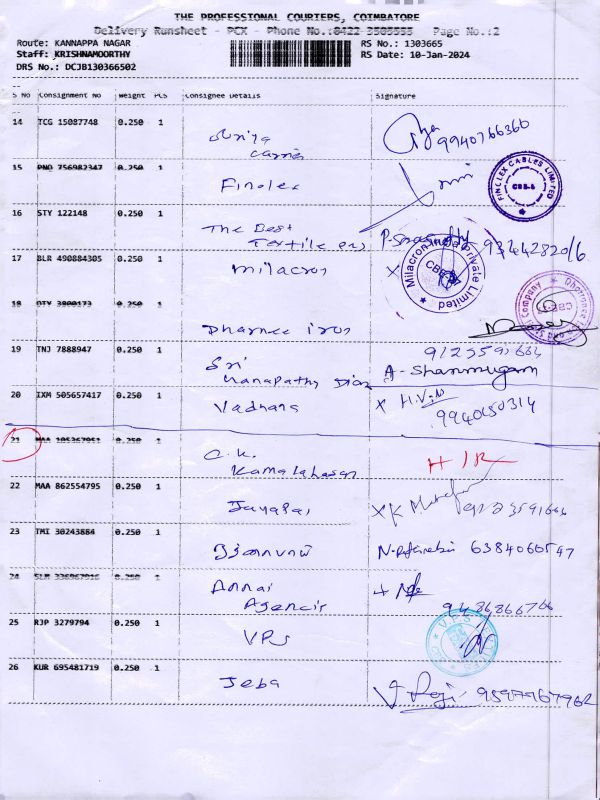 THE PROFESSIONAL COURIERS, COIMBATORE
Delivery Runsheet - PCX - Phone No.:0422 3505555 Page No.:2
Route: KANNAPPA NAGAR RS No.: 1303665
Staff: KRISHNAMOORTHY RS Date: 10-Jan-2024
DRS No.: DCJB130366502
S No Consignment No Weight PCS Consignee Details Signature
14 TCG 15087748 0.250 1
9940766360
15 PNQ 756982347 0.250 1
Finolex
FINOLEX CABLES LIMITED
16 STY 122148 0.250 1
The Best
Textile
17 BLR 490884305 0.250 1
Milacros X
Milacron India Private Limited
18 0.250 1
Dharnee iron
19 TNJ 7888947 0.250 1
Sri
A- Shanmugam
20 IXM 505657417 0.250 1
Vadhana X H.V.N
9940650314
21 MAA 105367951 0.250 1
C.K.
Kamalahasan H/R
22 MAA 862554795 0.250 1
Jayapal
23 TMI 30243884 0.250 1
6384060547
24 0.250 1
Annai
Agencis
9486866766
25 RJP 3279794 0.250 1
VPS
VPS
26 KUR 695481719 0.250 1
Jeba
9597967962